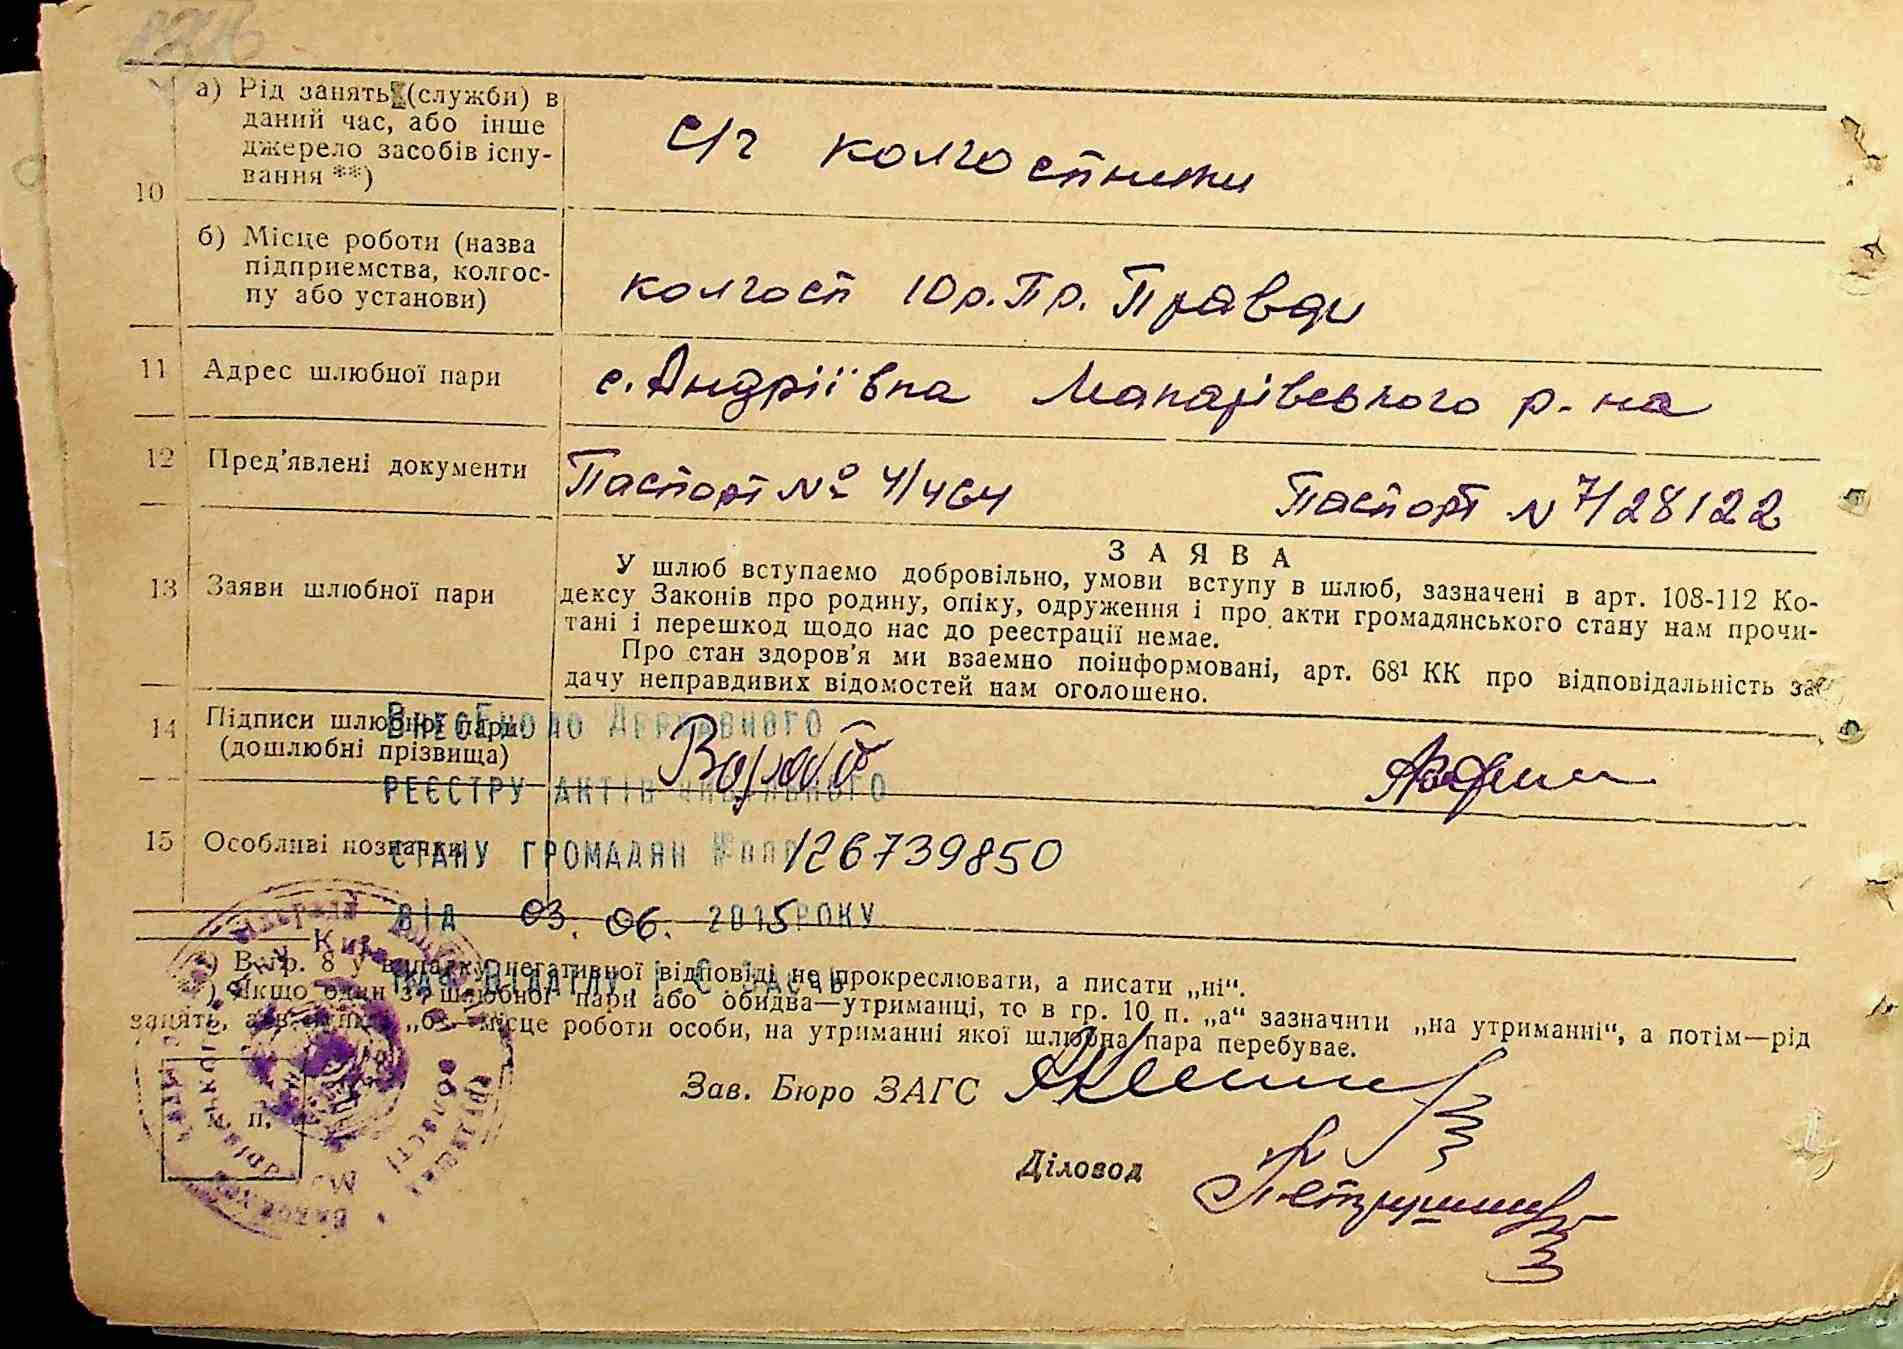 10
а) Рід занять (служби) в
даний час, або інше
джерело засобів існу-
вання **)
с/г колгоспники
б) Місце роботи (назва
підприемства, колгос-
пу або установи)
колгосп 10 р. Пр. Правди
11 Адрес шлюбної пари
с. Андріївка Макарівського р-на
12 Пред’явлені документи
Паспорт № 4/464 Паспорт N 7/28122
ЗАЯВА
13 Заяви шлюбної пари
У шлюб вступаемо добровільно, умови вступу в шлюб, зазначені в арт. 108-112 Ко-
дексу Законів про родину, опіку, одруження і про акти громадянського стану нам прочи-
тані і перешкод щодо нас до реестрації немае.
Про стан здоров’я ми взаемно поінформовані, арт. 68¹ КК про відповідальність за
дачу неправдивих відомостей нам оголошено.
14 Підписи шлюбної пари
(дошлюбні прізвища)
Внесено до Державного
реєстру актів цивільного
15 Особливі позначки
стану громадян № 126739850
від 03. 06. 2015 року
*) В гр. 8 у випадку негативної відповіді не прокреслювати, а писати „ні“.
**) Якщо один з шлюбної пари або обидва—утриманці, то в гр. 10 п. „а“ зазначити „на утриманні“, а потім—рід
занять, а в пункті „б“—місце роботи особи, на утриманні якої шлюбна пара перебувае.
Зав. Бюро ЗАГС
м. п.
Діловод